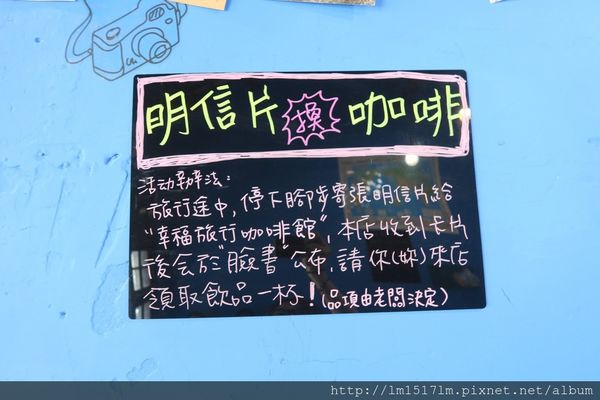 明信片換咖啡
活动辦法：
旅行途中，停下腳步寄張明信片給
"幸福旅行咖啡館"，本店收到卡片
後会於"臉書"公布，請你(妳)來店
領取飲品一杯！(品項由老闆決定)
http://lm1517lm.pixnet.net/album